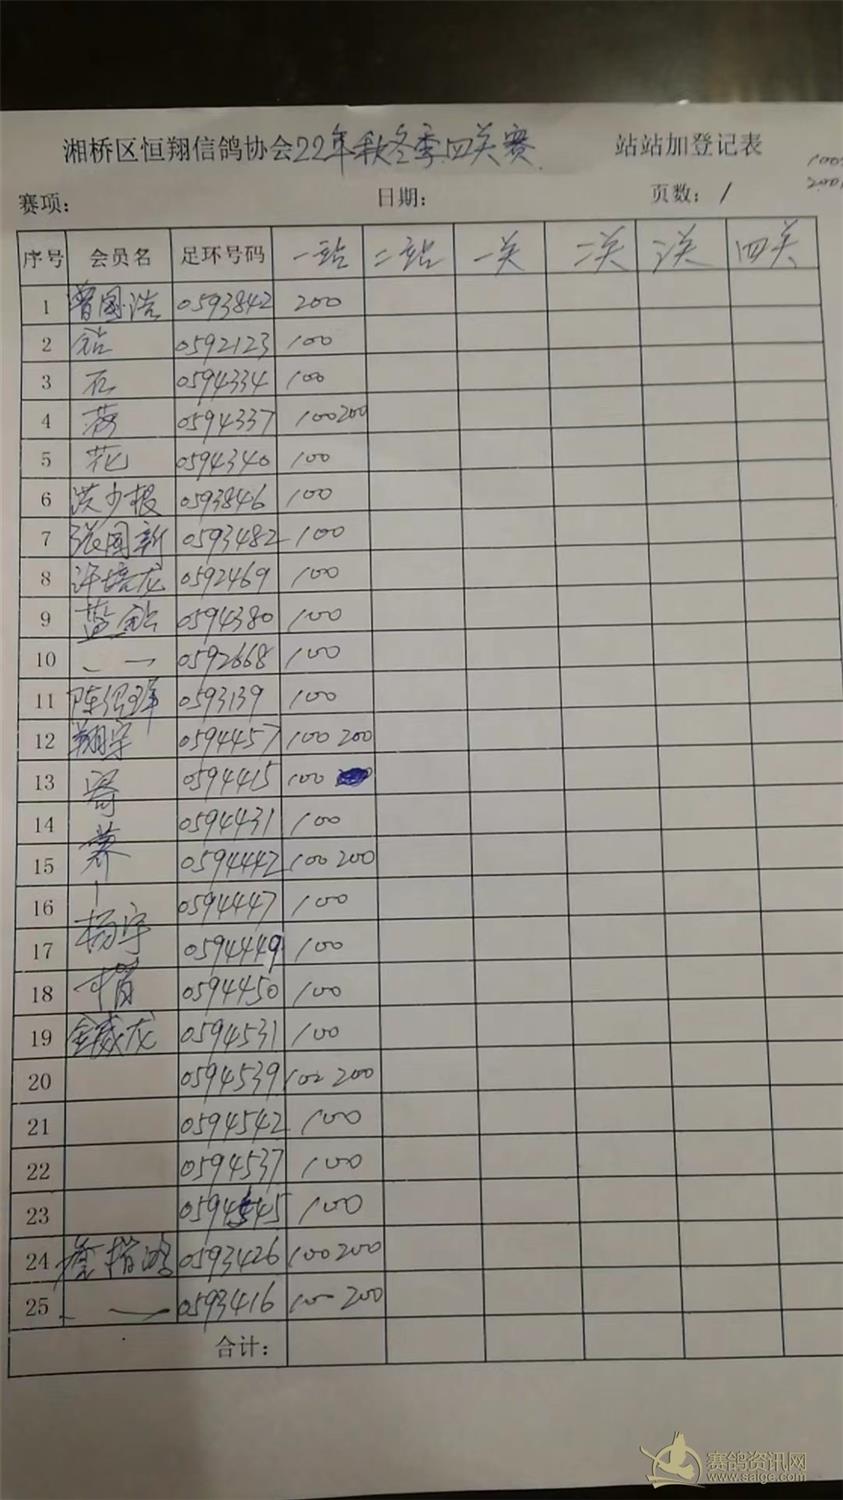 湘桥区恒翔信鸽协会22年秋冬季四关赛 站站加登记表
赛项: 日期: 页数: 1
序号 会员名 足环号码 一站 二站 一关 二关 三关 四关
1 曾国浩 0593842 200
2 钻 0592123 100
3 石 0594334 100
4 荷 0594337 100 200
5 花 0594340 100
6 洪少根 0593846 100
7 张国新 0593482 100
8 许培龙 0592469 100
9 蓝钻 0594380 100
10 0592668 100
11 0593139 100
12 翔宇 0594457 100 200
13 寄 0594415 100
14 养 0594431 100
15 0594442 100 200
16 0594447 100
17 杨宇 0594449 100
18 0594450 100
19 金威龙 0594531 100
20 0594539 100 200
21 0594542 100
22 0594537 100
23 0594545 100
24 0593426 100 200
25 0593416 100 200
合计:
赛鸽资讯网
www.saige.com